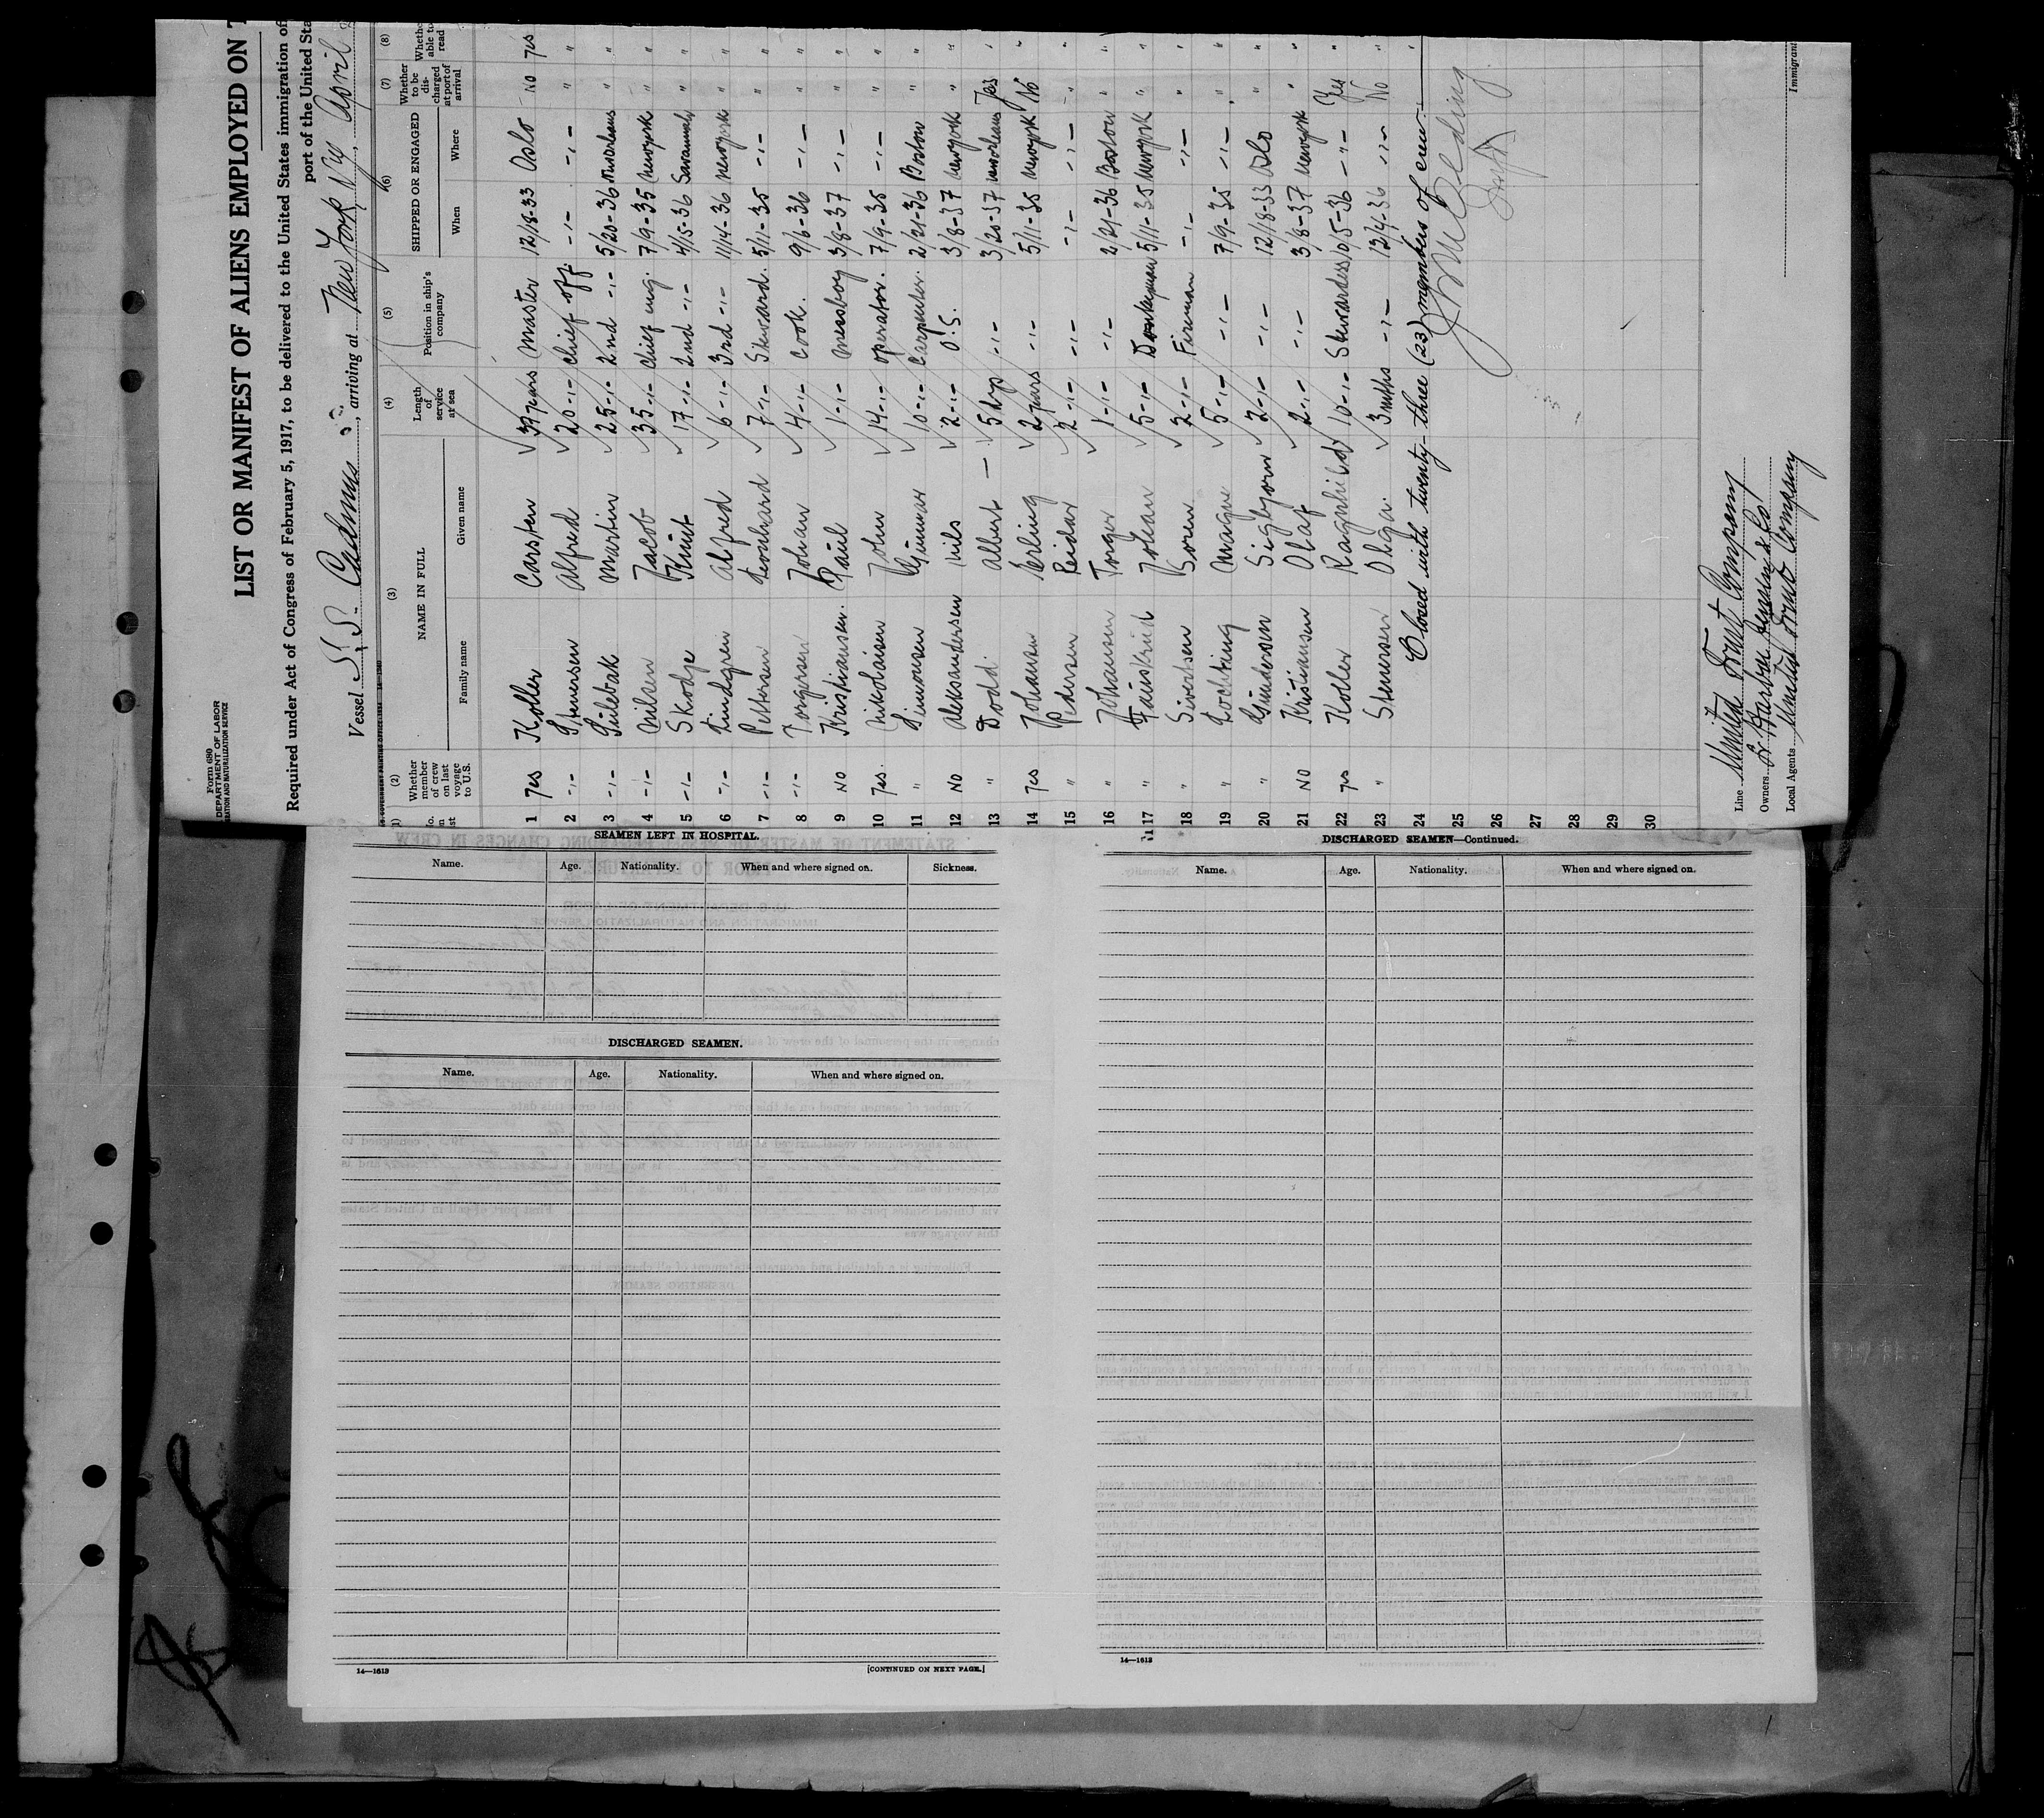 Form 680
DEPARTMENT OF LABOR
LIST OR MANIFEST OF ALIENS EMPLOYED ON
Required under Act of Congress of February 5, 1917, to be delivered to the United States immigration of
port of the United Sta
Vessel S.S. Cadmus, arriving at New York N.Y. April
(2) Whether member of crew on last voyage to U.S.
(3) NAME IN FULL
Family name Given name
(4) Length of service at sea
(5) Position in ship's company
(6) SHIPPED OR ENGAGED
When Where
(7) Whether to be discharged at port of arrival
(8) Whethe able to read
1 Yes Koller Carsten 37 years Master 12/18-33 Oslo No Yes
2 -"- Stenersen Alfred 20 -"- Chief off. -"- -"- " "
3 -"- Martin 25 -"- 2nd -"- 5/20-36 Nworleans " "
4 -"- Nilsen Jacob 35 -"- Chief eng. 7/9-35 Newyork " "
5 -"- Skodje Knut 17 -"- 2nd -"- 4/15-36 Savannah " "
6 -"- Lindgren Alfred 6 -"- 3rd -"- 11/14-36 Newyork " "
7 -"- Pettersen Leonhard 7 -"- Steward. 5/11-35 -"- " "
8 -"- Torgersen Johan 4 -"- Cook. 9/6-36 -"- " "
9 No Kristiansen. Paul 1 -"- Messboy 3/8-37 -"- " "
10 Yes. Nikolaisen John 14 -"- operator. 7/9-35 -"- " "
11 " Simonsen Gunnar 10 -"- Carpenter. 2/21-36 Boston " "
12 No Aleksandersen Nils 2 -"- O.S. 3/8-37 Newyork " "
13 " Dodd. Albert 5 -"- 3/20-37 Nworleans Yes "
14 Yes Johansen Erling 2 years -"- 5/11-35 Newyork No "
15 " Pedersen Reidar 2 -"- -"- -"- -"- " "
16 " Johansen Torger 1 -"- -"- 2/21-36 Boston " "
17 " Fauskrud Johan 5 -"- Donkeyman 5/11-35 Newyork " "
18 " Sivertsen Soren 2 -"- Fireman -"- -"- " "
19 " Magne 5 -"- -"- 7/9-35 -"- " "
20 " Gunderson Sigbjorn 2 -"- -"- 12/18-33 Oslo " "
21 No Kristiansen Olaf 2 -"- -"- 3/8-37 Newyork " "
22 Yes Koller Ragnhild 10 -"- Stewardess 10/5-36 -"- Yes "
23 " Stenersen Olga. 3 mths -"- 12/4-36 -"- No "
24 Closed with twenty-three (23) members of crew.
25
26
27
28
29
30
Line United Fruit Company
Owners
Local Agents United Fruit Company
Immigrant
SEAMEN LEFT IN HOSPITAL.
Name. Age. Nationality. When and where signed on. Sickness.
DISCHARGED SEAMEN.
Name. Age. Nationality. When and where signed on.
14—1613 [CONTINUED ON NEXT PAGE.]
DISCHARGED SEAMEN—Continued.
Name. Age. Nationality. When and where signed on.
14—1613